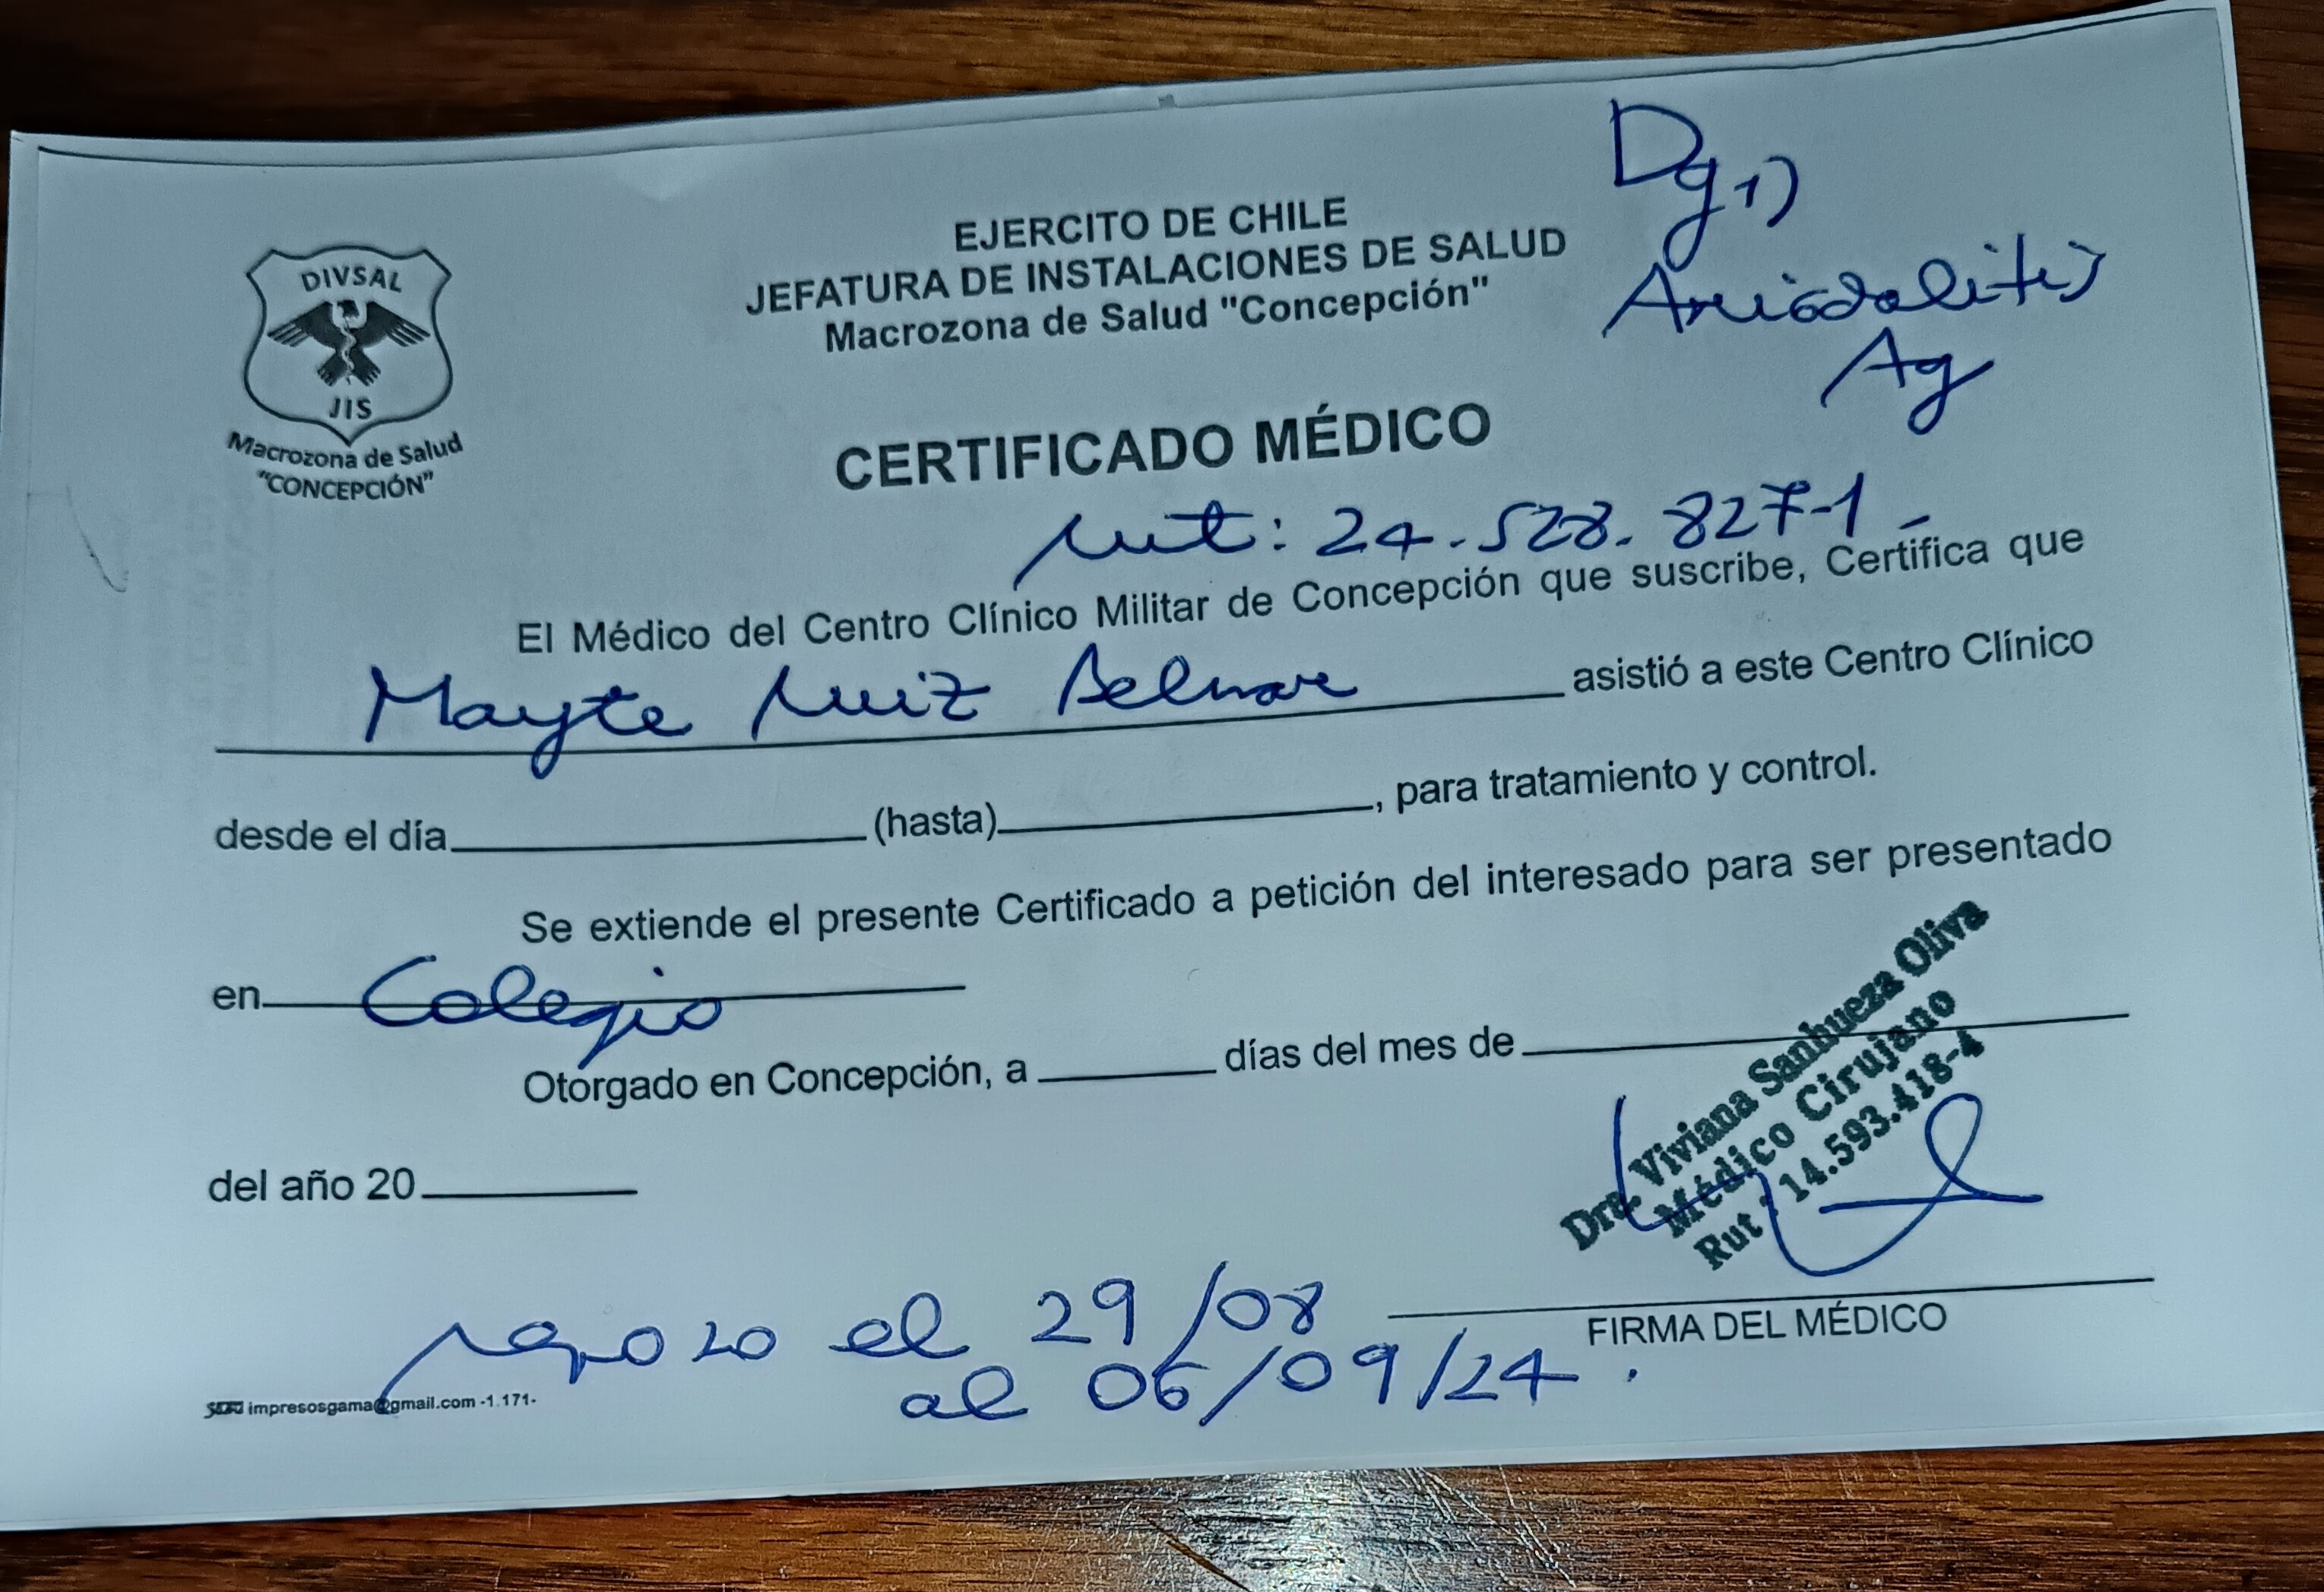 DIVSAL
JIS
Macrozona de Salud
"CONCEPCIÓN"
EJERCITO DE CHILE
JEFATURA DE INSTALACIONES DE SALUD
Macrozona de Salud "Concepción"
Dg 1)
Amigdalitis
Ag
CERTIFICADO MÉDICO
rut: 24.528.827-1
El Médico del Centro Clínico Militar de Concepción que suscribe, Certifica que
Mayte Ruiz asistió a este Centro Clínico
desde el día (hasta) , para tratamiento y control.
Se extiende el presente Certificado a petición del interesado para ser presentado
en Colegio
Otorgado en Concepción, a días del mes de
del año 20
Dra. Viviana Sanhueza Oliva
Médico Cirujano
Rut : 14.593.418-4
FIRMA DEL MÉDICO
reposo el 29/08
al 06/09/24.
impresosgama@gmail.com -1.171-